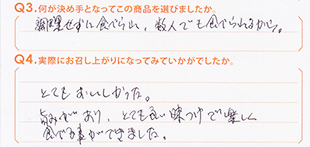 Q3.何が決め手となってこの商品を選びましたか。
調理せずに食べられ、数人でも食べられるから。
Q4.実際にお召し上がりになってみていかがでしたか。
とてもおいしかった。
あり、とても良い味つけで楽しく
食べる事ができました。